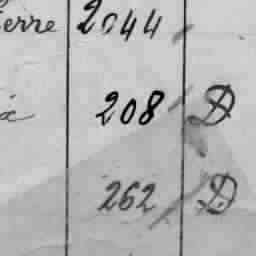 erre 2044
208 D
262 D